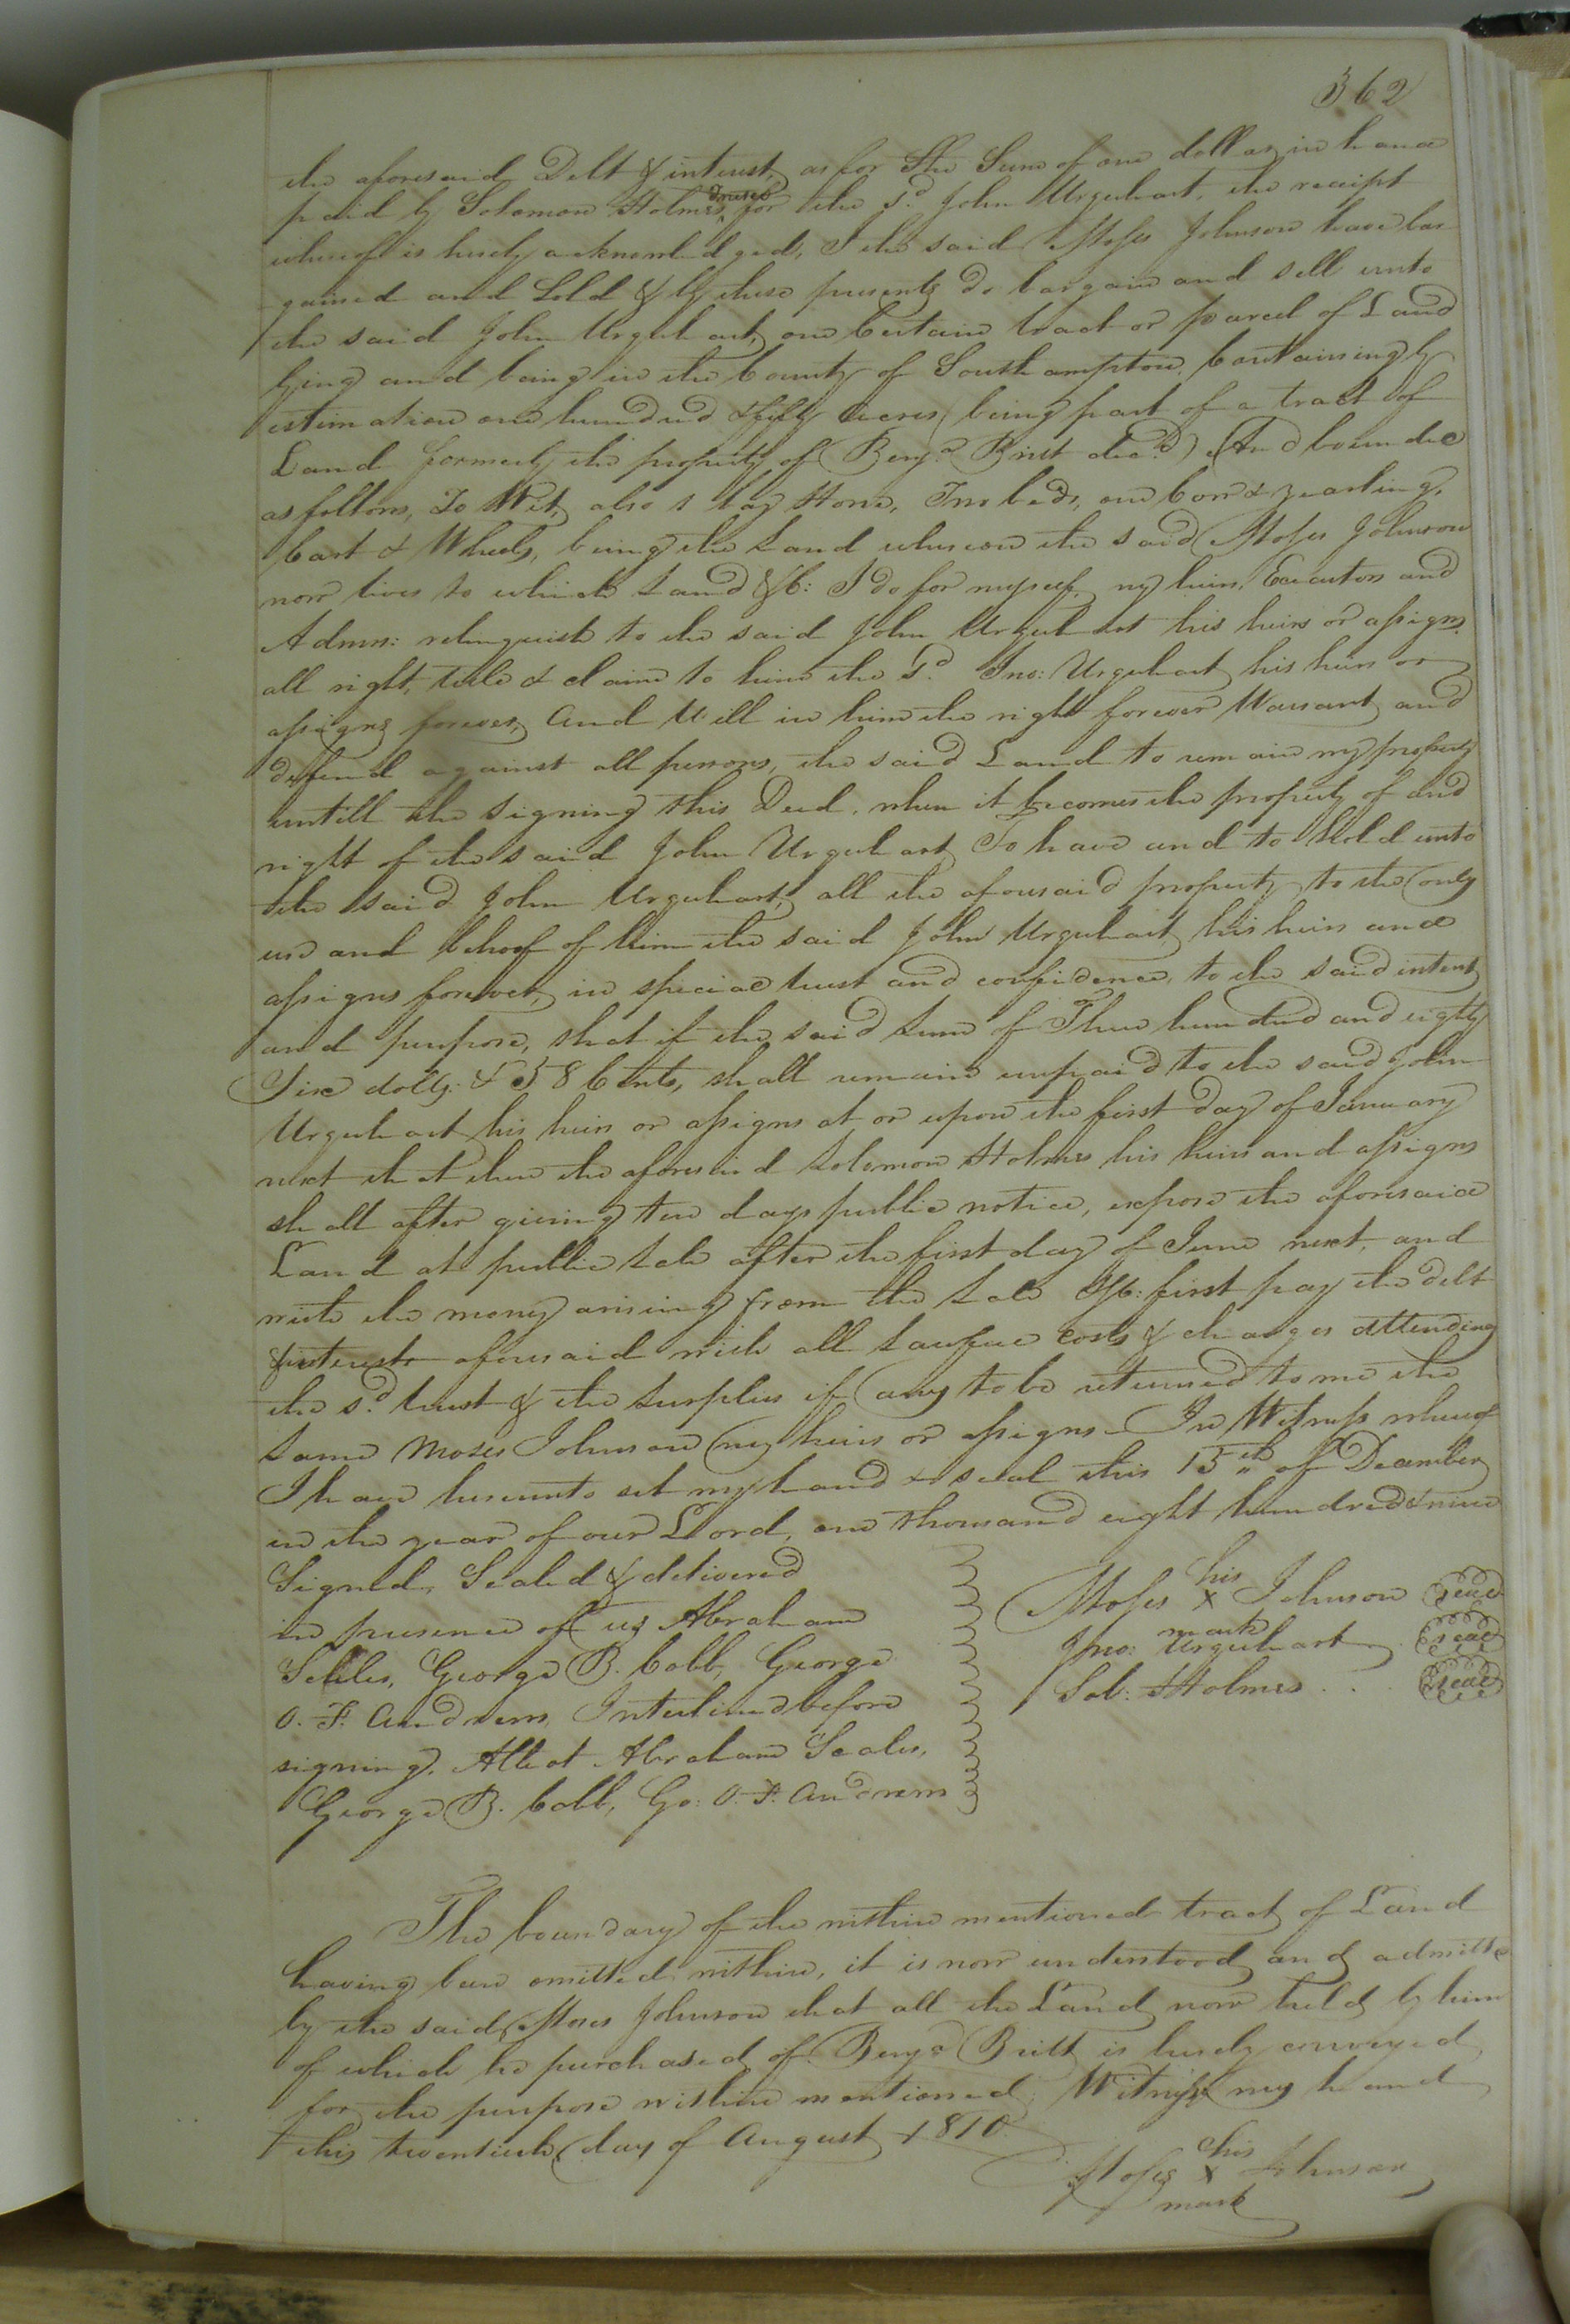 362
the aforesaid Debt & interest, as for the Sum of one dollar, in hand
paid by Solomon Holmes, trustee for the sd. John Urquhart, the receipt
whereof is hereby acknowledged, I the said Moses Johnson have bar
gained and Sold & by these presents do bargain and sell unto
the said John Urquhart, one Certain tract or parcel of Land
lying and being in the County of Southampton, Containing by
estimation one hundred & fifty acres (being part of a tract of
Land formerly the property of Benja. Britt decd.) And bounded
as follows, To Wit, also 1 bay Horse, Two beds, one Cow & yearling,
Cart & Wheels, being the Land whereon the said Moses Johnson
now lives to which Land &C: I do for myself, my heirs, Executors and
Admrs: relinquish to the said John Urquhart his heirs or assigns
all right, title & claim to him the sd. Jno: Urquhart his heirs or
assigns forever, And Will in him the right forever Warrant and
defend against all persons, the said Land to remain my property
untill the signing this Deed, when it becomes the property of and
right of the said John Urquhart, To have and to Hold unto
the said John Urquhart, all the aforesaid property to the only
use and behoof of him the said John Urquhart his heirs and
assigns forever, in special trust and confidence, to the said intent
and purpose, that if the said Sum of Three hundred and eighty
Six dolls. & 58 Cents, shall remain unpaid to the said John
Urquhart his heirs or assigns at or upon the first day of January
next that then the aforesaid Solomon Holmes his heirs and assigns
shall after giving ten days public notice, expose the aforesaid
Land at public Sale after the first day of June next, and
with the money arising from the Sale &C: first pay the debt
& interest aforesaid with all Lawful costs & charges attending
the sd. trust & the Surplus if any to be returned to me the
Same Moses Johnson my heirs or assigns. In Witness whereof
I have hereunto set my hand & seal this 15th of December
in the year of our Lord, one thousand eight hundred & nine
Signed, Sealed & delivered
in presence of us Abraham
Scales, George B. Cobb, George
O. F. Andrews, Interlined before
signing. Attest Abraham Scales,
George B. Cobb, Go: O. F. Andrews
his
Moses X Johnson seal
mark
Jno: Urquhart seal
Sol: Holmes . . . seal
The boundary of the within mentioned tract of Land
having been omitted within, it is now understood and admitte
by the said Moses Johnson that all the Land now held by him
of which he purchased of Benja Britt is hereby conveyed
for the purpose within mentioned. Witness my hand
this twentieth day of August 1810
his
Moses X Johnson
mark